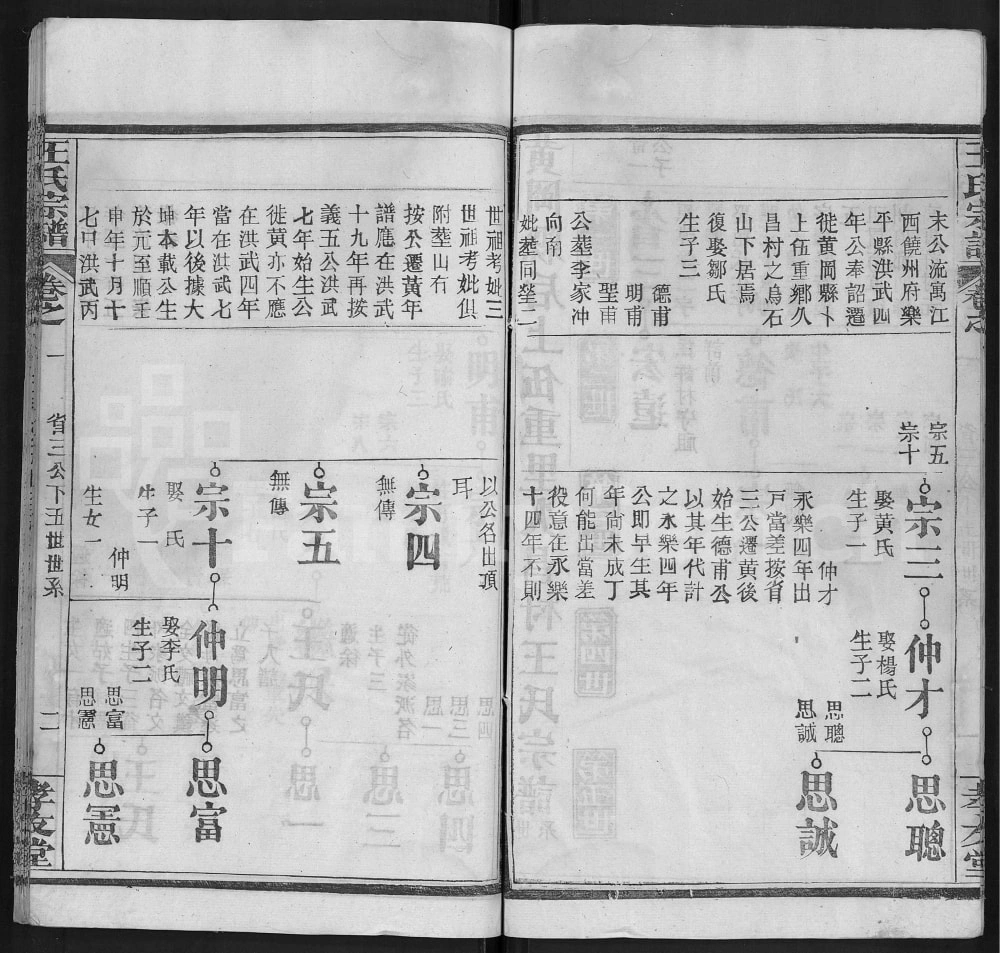 王氏宗譜
卷之
孝友堂
末公流寓江
西饒州府樂
平縣洪武四
年公奉詔遷
徙黃岡縣卜
上伍重鄉久
昌村之烏石
山下居焉
復娶鄒氏
生子三
德甫
明甫
聖甫
公塟李家冲
向南
妣塟同塋二
宗五
宗十
宗三
娶黃氏
生子一
仲才
永樂四年出
戸當差按省
三公遷黃後
始生德甫公
以其年代計
之永樂四年
公即早生其
年尚未成丁
何能出當差
役意在永樂
十四年不則
仲才
娶楊氏
生子二
思聰
思誠
思聰
思誠
世祖考妣三
世祖考妣俱
附塟山右
按公遷黃年
譜應在洪武
十九年再按
義五公洪武
七年始生公
徙黃亦不應
在洪武四年
當在洪武七
年以後據大
坤本載公生
於元至順壬
申年十月十
七口洪武丙
以公名出頂
耳
宗四
無傳
宗五
無傳
宗十
娶 氏
生子一
仲明
生女一
仲明
娶李氏
生子二
思富
思憲
思富
思憲
王氏宗譜
卷之一
省三公下五世世系
二
孝友堂